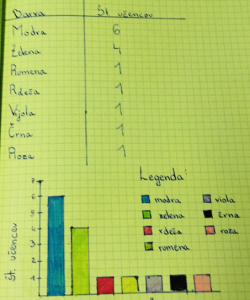 Barva Št. učencov
Modra 6
Zelena 4
Rumena 1
Rdeča 1
Vijola 1
Črna 1
Roza 1
Legenda
modra viola
zelena črna
rdeča roza
rumena
Št. učencov
7
6
5
4
3
2
1